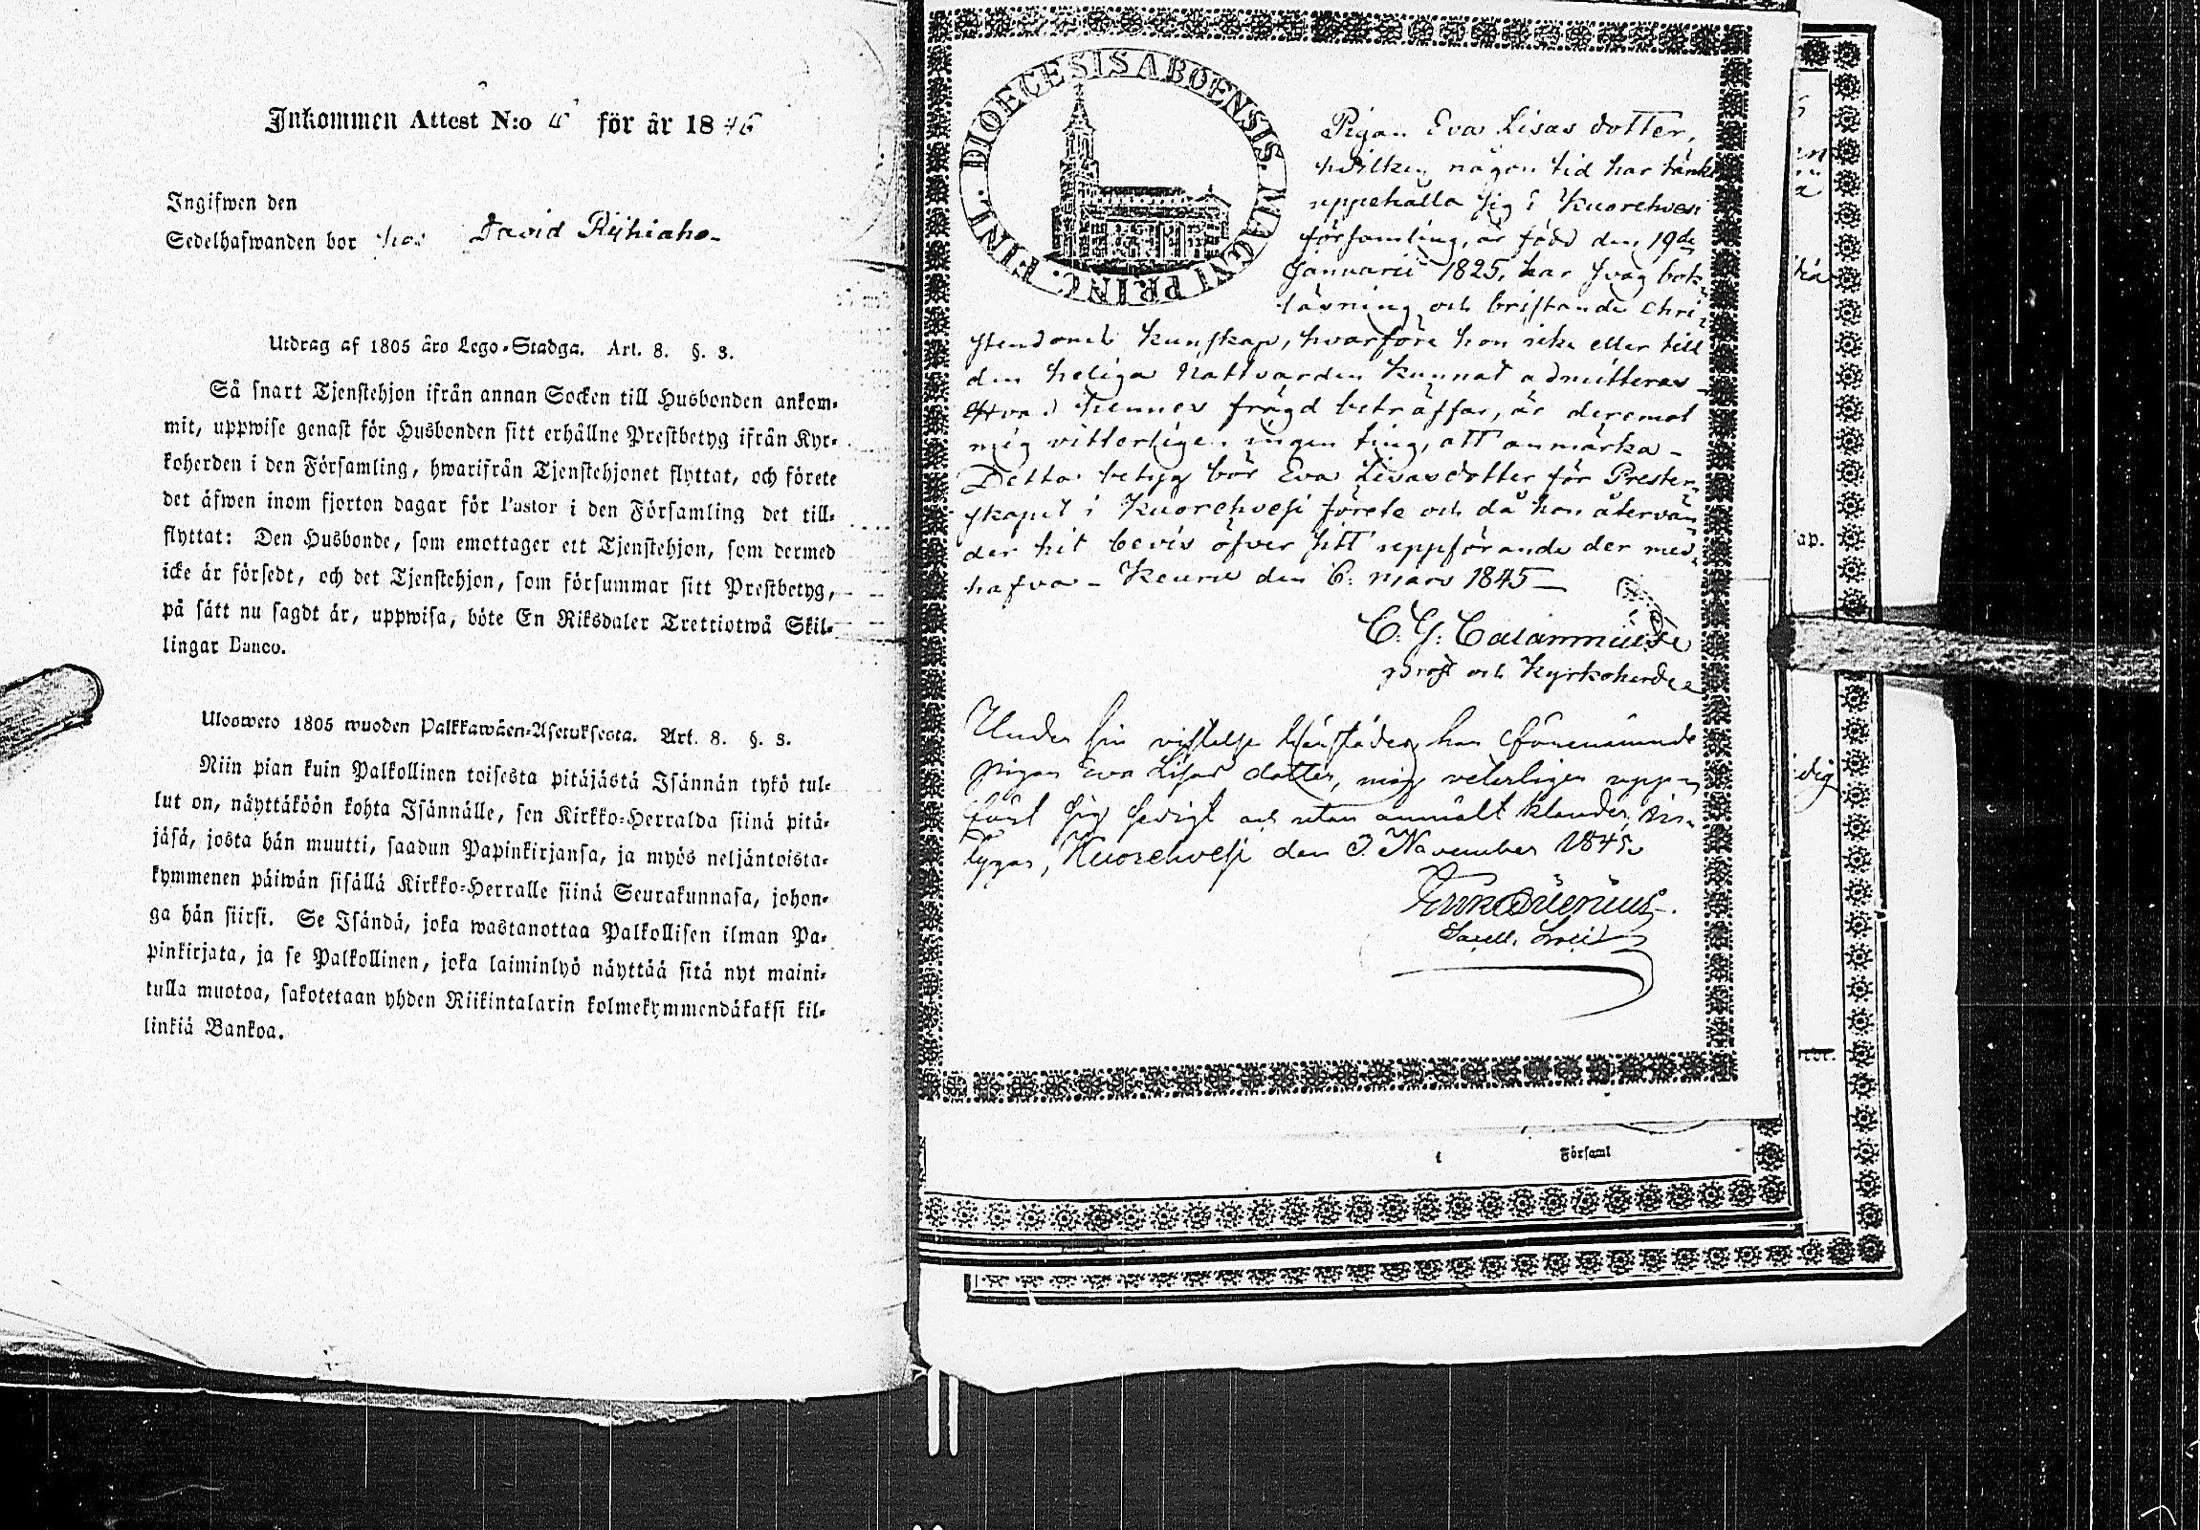 Inkommen Attest N:o för år 1846
Ingifwen den
Sedelhafwanden bor hos David Rijhiaho
Utdrag af 1805 åro Lego-Stadga. Art. 8. §. 3.
Så snart Tjenstehjon ifrån annan Socken till Husbonden ankom-
mit, uppwise genast för Husbonden sitt erhållne Prestbetyg ifrån Kyr-
koherden i den Församling, hwarifrån Tjenstehjonet flyttat, och förete
det äfwen inom fjorton dagar för Pastor i den Församling det till-
flyttat: Den Husbonde, som emottager ett Tjenstehjon, som dermed
icke är försedt, och det Tjenstehjon, som försummar sitt Prestbetyg,
på sätt nu sagdt är, uppwisa, böte En Riksdaler Trettiotwå Skil-
lingar Banco.
Ulosweto 1805 wuoden Palkkawäen-Asetuksesta. Art. 8. §. 3.
Niin pian kuin Palkollinen toisesta pitäjästä Isännän tykö tul-
lut on, näyttäköön kohta Isännälle, sen Kirkko-Herralda siinä pitä-
jäsä, josta hän muutti, saadun Papinkirjansa, ja myös neljäntoista-
kymmenen päiwän sisällä Kirkko-Herralle siinä Seurakunnasa, johon-
ga hän siirsi. Se Isändä, joka wastanottaa Palkollisen ilman Pa-
pinkirjata, ja se Palkollinen, joka laiminlyö näyttää sitä nyt maini-
tulla muotoa, sakotetaan yhden Riikintalarin kolmekymmendäkaksi kil-
linkiä Bankoa.
DIOECESIS ABOENSIS. MAGNI PRINC. FINL.
Pigan Eva Lisas dotter,
hvilken någon tid har tänkt
uppehålla sig i Kuorehvesi
församling, är född den 19de
Januarii 1825, har svag bok-
läsning och bristande Chri-
stendoms kunskap, hvarföre hon icke eller till
den heliga Nattvarden kunnat admitteras -
Hvad hennes frägd beträffar, är deremot
mig vitterligen ingen ting, att anmärka -
Detta betyg bör Eva Lisasdotter för Prester-
skapet i Kuorehvesi förete och då hon återvän-
der hit bevis öfver sitt uppförande der med
hafva - Keuru den 6. mars 1845 -
C. G. Calamnius
Prost och Kyrkoherde
Under sin vistelse härstädes har förenämnde
pigan Eva Lisas dotter, mig veterligen upp-
fört sig sedigt och utan anmält klander,
Kuorehvesi den November 1845
Församl